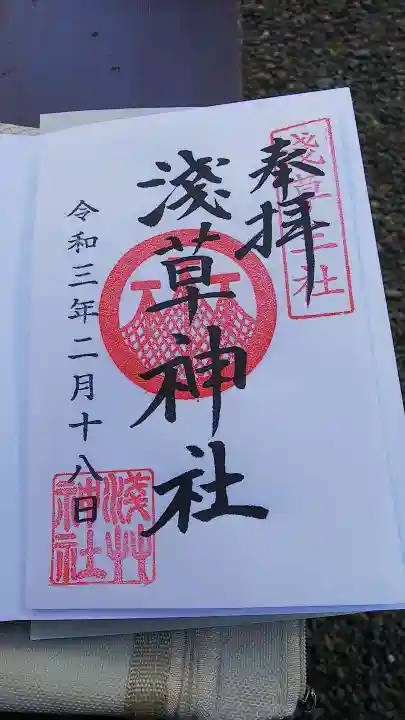 奉拝
淺草三社
淺草神社
令和三年二月十八日
淺草神社